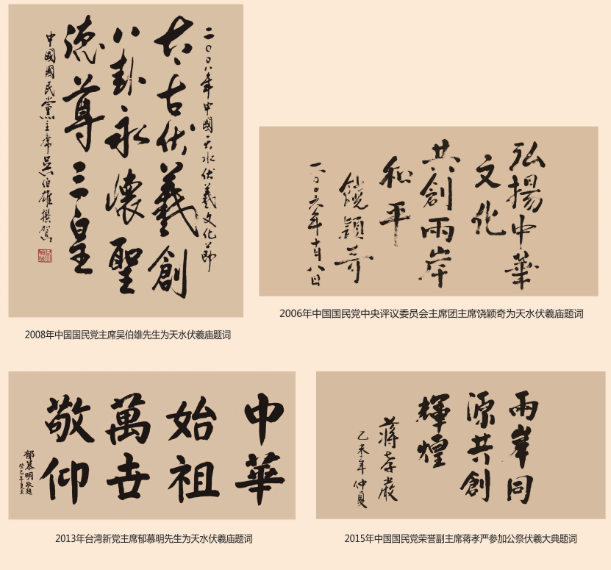 二〇〇八年中國天水伏羲文化節
太古伏羲創
八卦永懷聖
德尊三皇
中國國民黨主席吳伯雄撰賀
2008年中国国民党主席吴伯雄先生为天水伏羲庙题词
弘揚中華
文化
共創兩岸
和平
饒穎奇
二〇〇六年十月八日
2006年中国国民党中央评议委员会主席团主席饶颖奇为天水伏羲庙题词
中華
始祖
萬世
敬仰
郁慕明敬題
2013年台湾新党主席郁慕明先生为天水伏羲庙题词
兩岸同
源共創
輝煌
蔣孝嚴
乙未年仲夏
2015年中国国民党荣誉副主席蒋孝严参加公祭伏羲大典题词